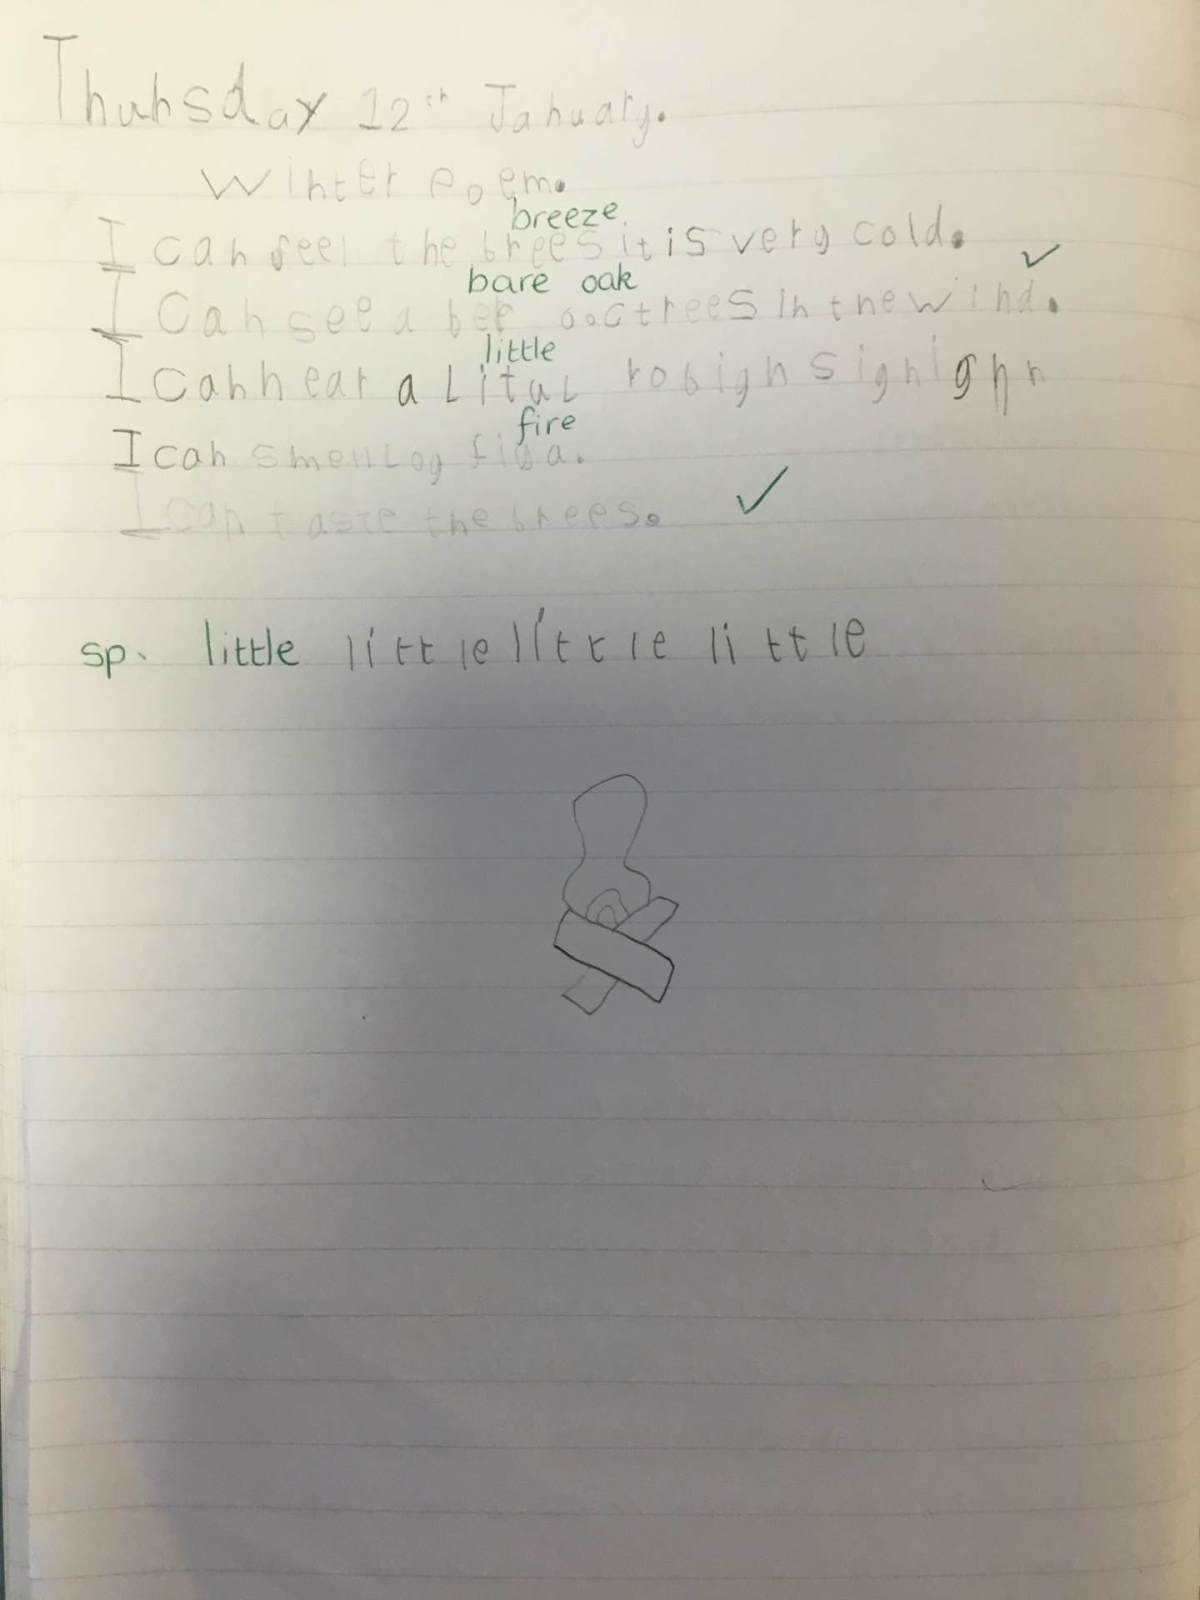 Thursday 12th January.
Winter Poem.
breeze.
I can feel the brees it is very cold.
bare oak
I can see a bee ooc trees in the wind.
little
I can hear a litul robign signign
fire
I can smell log fiya.
I can taste the brees.
sp. little little little little